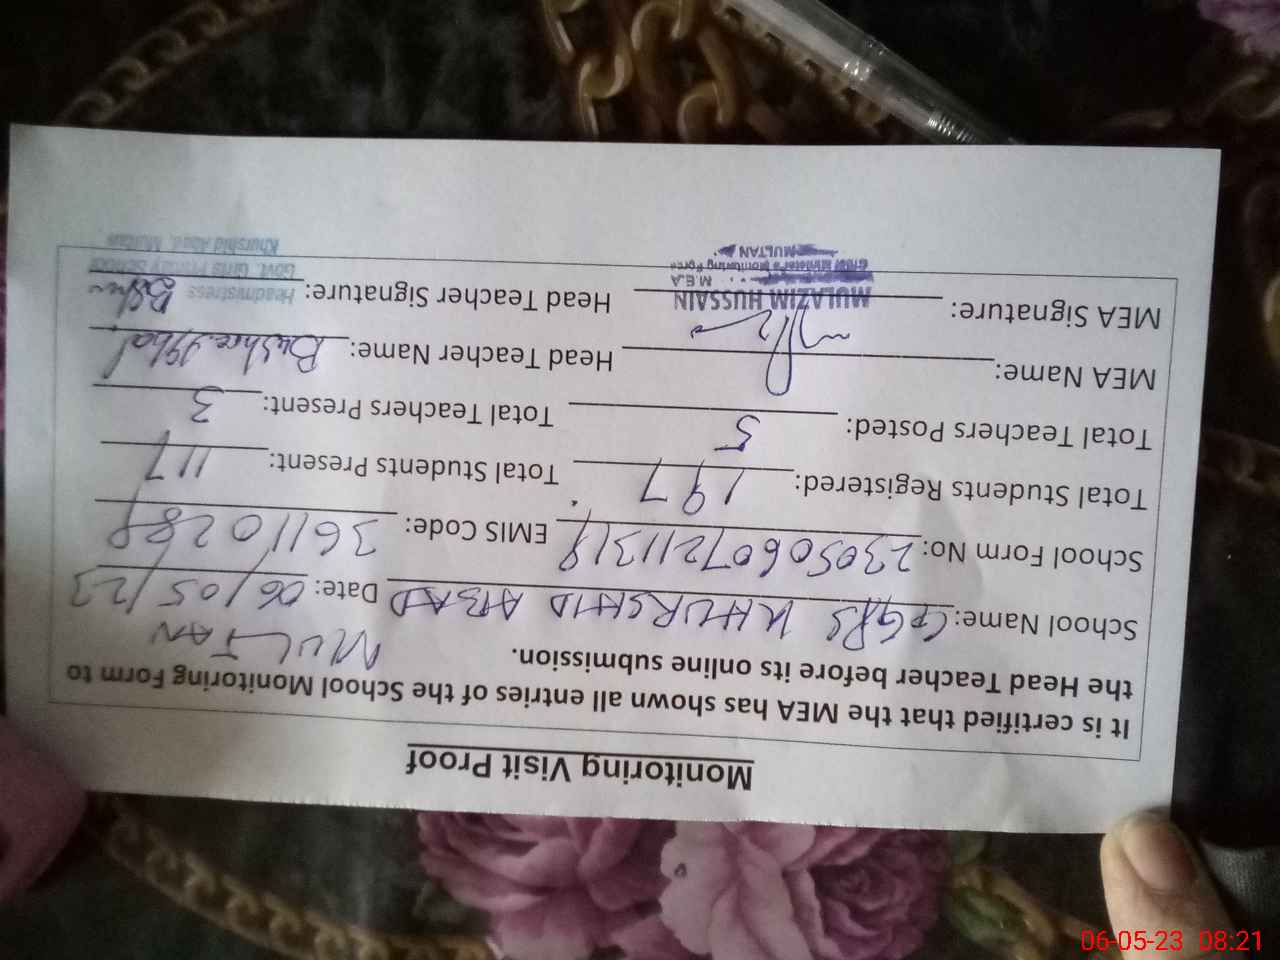 Monitoring Visit Proof
It is certified that the MEA has shown all entries of the School Monitoring Form to
the Head Teacher before its online submission.
MULTAN
School Name: GGPS KHURSHID ABAD Date: 06/05/23
School Form No: 2305060721131 EMIS Code: 3611028
Total Students Registered: 197 Total Students Present: 117
Total Teachers Posted: 5 Total Teachers Present: 3
MEA Name: Head Teacher Name: Bushra Iqbal
MEA Signature: Head Teacher Signature:
MULAZIM HUSSAIN
M.E.A
Chief Minister's Monitoring Force
MULTAN
Headmistress
Govt. Girls Primary School
Khurshid Abad, Multan
06-05-23 08:21